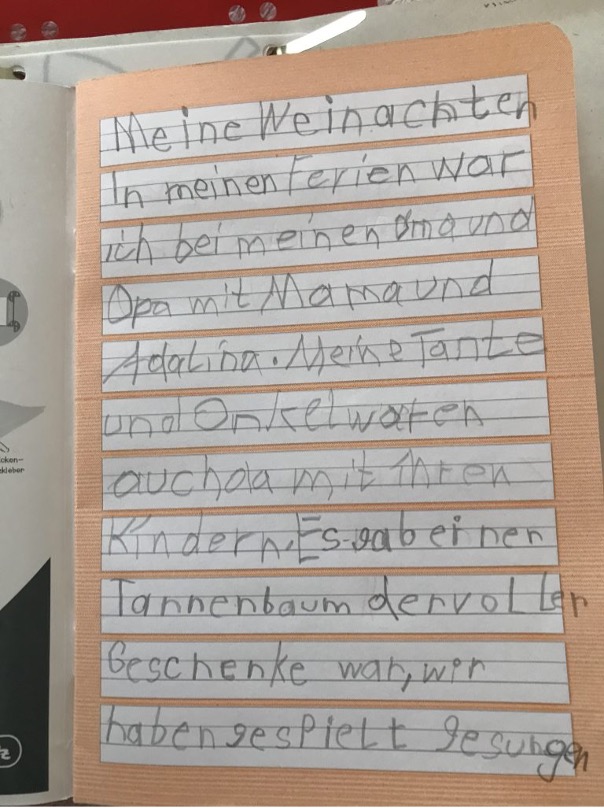 Meine Weinachten
In meinen Ferien war
ich bei meinen Oma und
Opa mit Mama und
Adalina. Meine Tante
und Onkel waren
auch da mit ihren
Kindern. Es gab einen
Tannenbaum der voller
Geschenke war, wir
haben gespielt gesungen
cken-
kleber